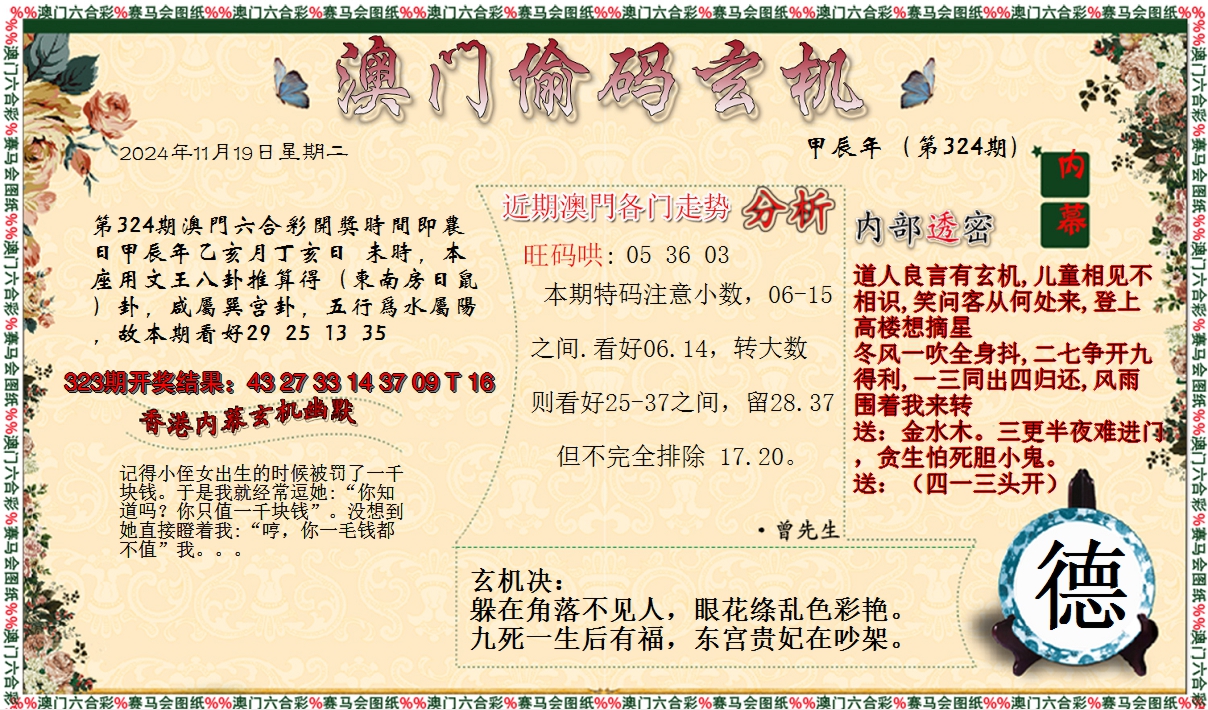 %%澳门六合彩%赛马会图纸%%澳门六合彩%赛马会图纸%%澳门六合彩%赛马会图纸%%澳门六合彩%赛马会图纸%%澳门六合彩%赛马会图纸%%澳门六合彩%赛马会图纸%%
澳门偷码玄机
2024年11月19日星期二
甲辰年（第324期）
第324期澳門六合彩開獎時間即農
日甲辰年乙亥月丁亥日 未時，本
座用文王八卦推算得（東南房日鼠
）卦，咸屬巽宫卦，五行爲水屬陽
，故本期看好29 25 13 35
323期开奖结果：43 27 33 14 37 09 T 16
香港内幕玄机幽默
记得小侄女出生的时候被罚了一千
块钱。于是我就经常逗她:“你知
道吗？你只值一千块钱”。没想到
她直接瞪着我:“哼，你一毛钱都
不值”我。。。
近期澳門各门走势 分析
旺码哄: 05 36 03
本期特码注意小数，06-15
之间.看好06.14，转大数
则看好25-37之间，留28.37
但不完全排除 17.20。
·曾先生
玄机决：
躲在角落不见人，眼花绦乱色彩艳。
九死一生后有福，东宫贵妃在吵架。
内幕
内部透密
道人良言有玄机,儿童相见不
相识,笑问客从何处来,登上
高楼想摘星
冬风一吹全身抖,二七争开九
得利,一三同出四归还,风雨
围着我来转
送：金水木。三更半夜难进门
，贪生怕死胆小鬼。
送：（四一三头开）
德
%%澳门六合彩%赛马会图纸%%澳门六合彩%赛马会图纸%%澳门六合彩%赛马会图纸%%澳门六合彩%赛马会图纸%%澳门六合彩%赛马会图纸%%澳门六合彩%赛马会图纸%%